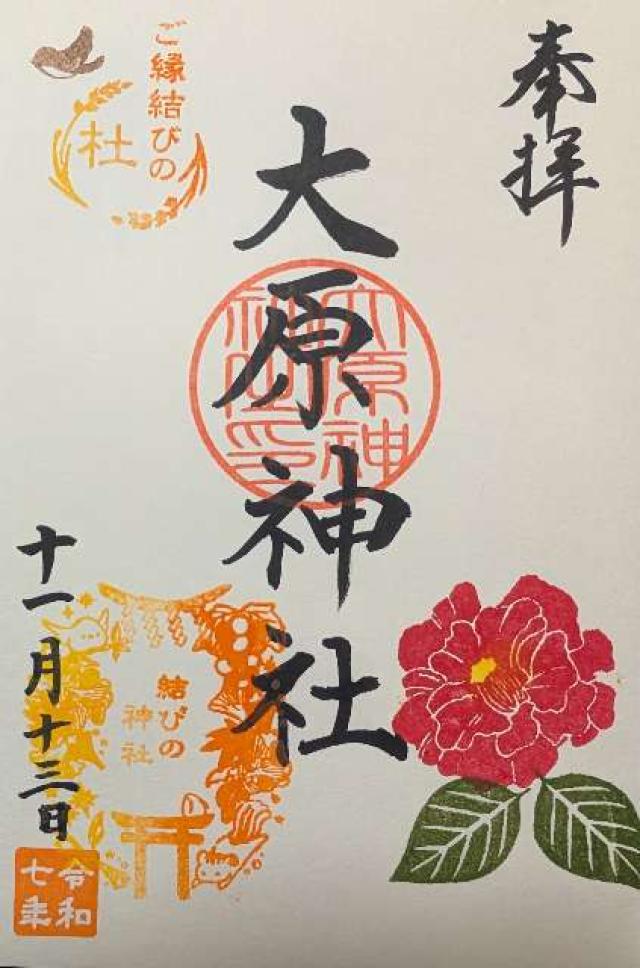 奉拝
大原神社
大原神社印
ご縁結びの
杜
結びの
神社
十一月十三日
令和
七年